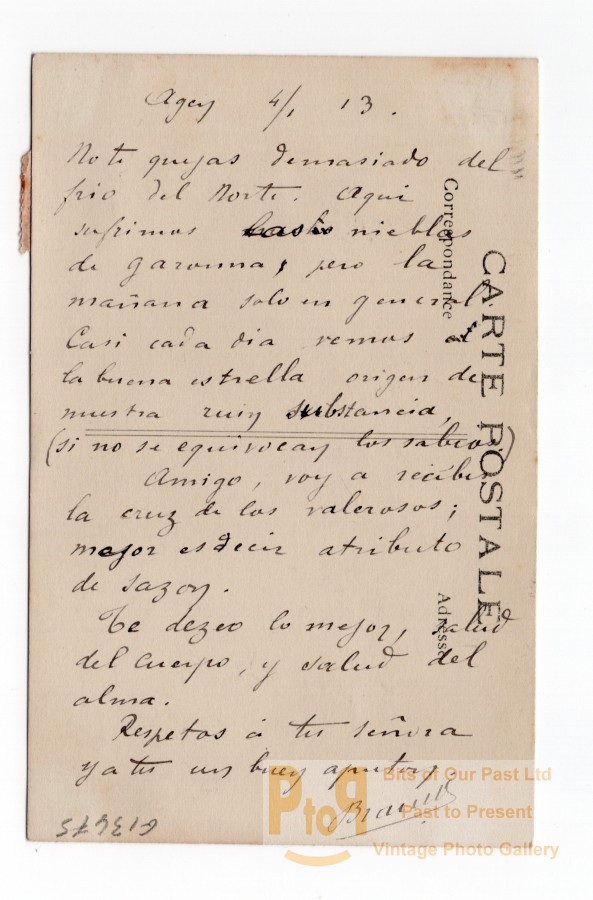 Agen 4/1 13.
No te quejas demasiado del
frio del Norte. Aqui
sufrimos nieblas
de garonna, pero la
mañana solo en general.
Casi cada dia vemos
la buena estrella origen de
nuestra ruin substancia,
(si no se equivocan los sabios)
Amigo, voy a recibir
la cruz de los valerosos;
mejor es decir atributo
de sazon.
Te dezeo lo mejor, salud
del cuerpo, y salud del
alma.
Respetos á tu señora
y a tu un buen
CARTE POSTALE
Correspondance
Adresse
G13675
PtoP
Bits of Our Past Ltd
Past to Present
Vintage Photo Gallery